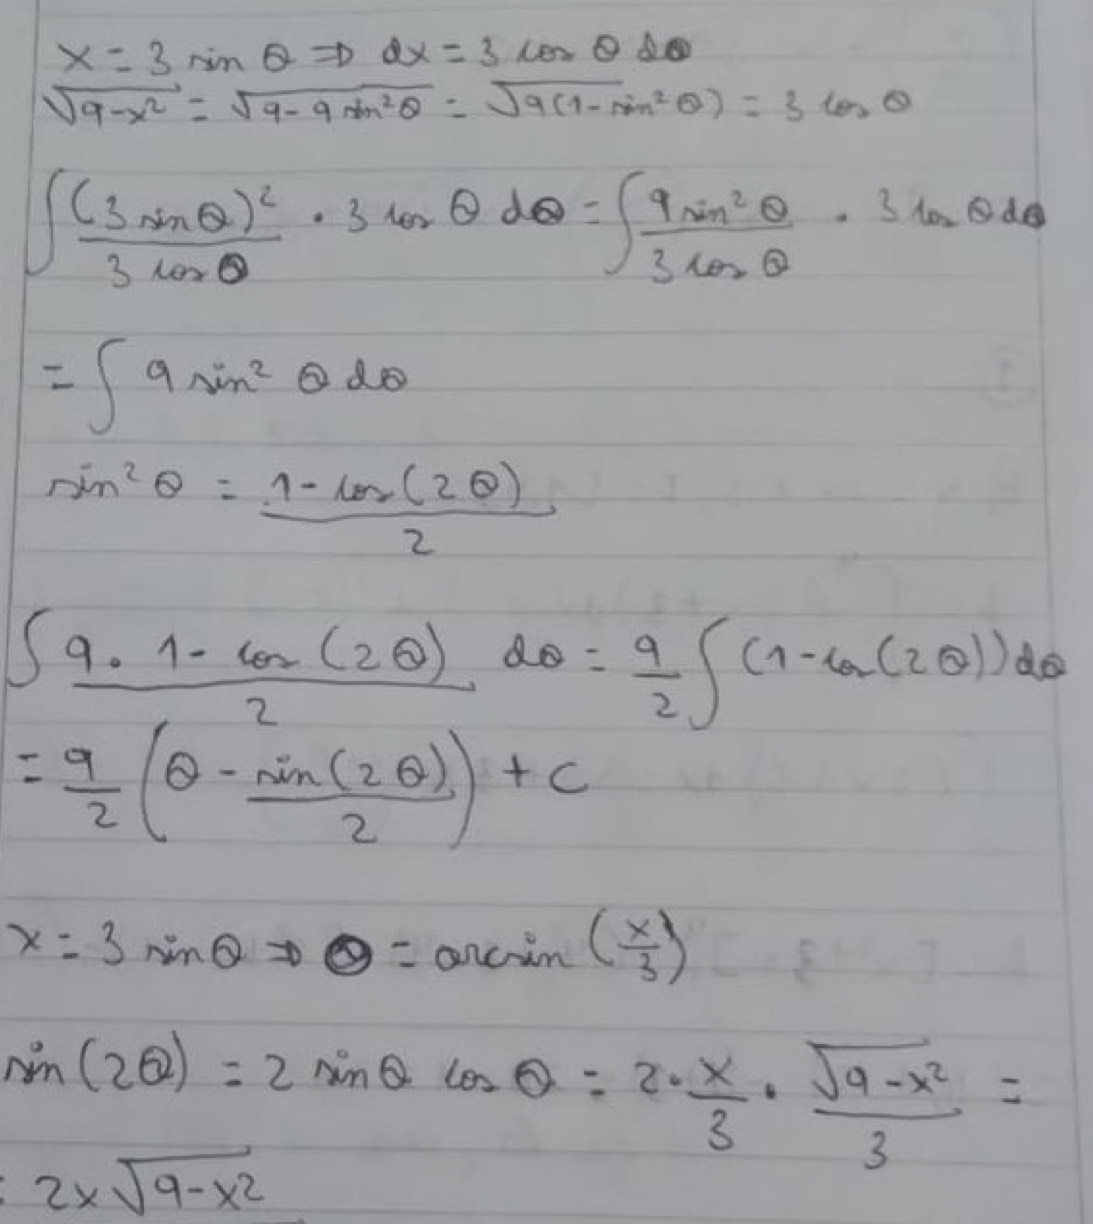 x = 3 sin θ ⇒ dx = 3 cos θ dθ
√(9-x²) = √(9-9 sin²θ) = √(9(1-sin²θ)) = 3 cos θ
∫ (3 sin θ)² / (3 cos θ) · 3 cos θ dθ = ∫ (9 sin² θ) / (3 cos θ) · 3 cos θ dθ
= ∫ 9 sin² θ dθ
sin² θ = (1 - cos(2θ)) / 2
∫ (9 · 1 - cos(2θ)) / 2 dθ = 9/2 ∫ (1 - cos(2θ)) dθ
= 9/2 (θ - sin(2θ)/2) + C
x = 3 sin θ ⇒ θ = arcsin (x/3)
sin(2θ) = 2 sin θ cos θ = 2 · x/3 · √(9-x²)/3 =
= 2x√(9-x²)